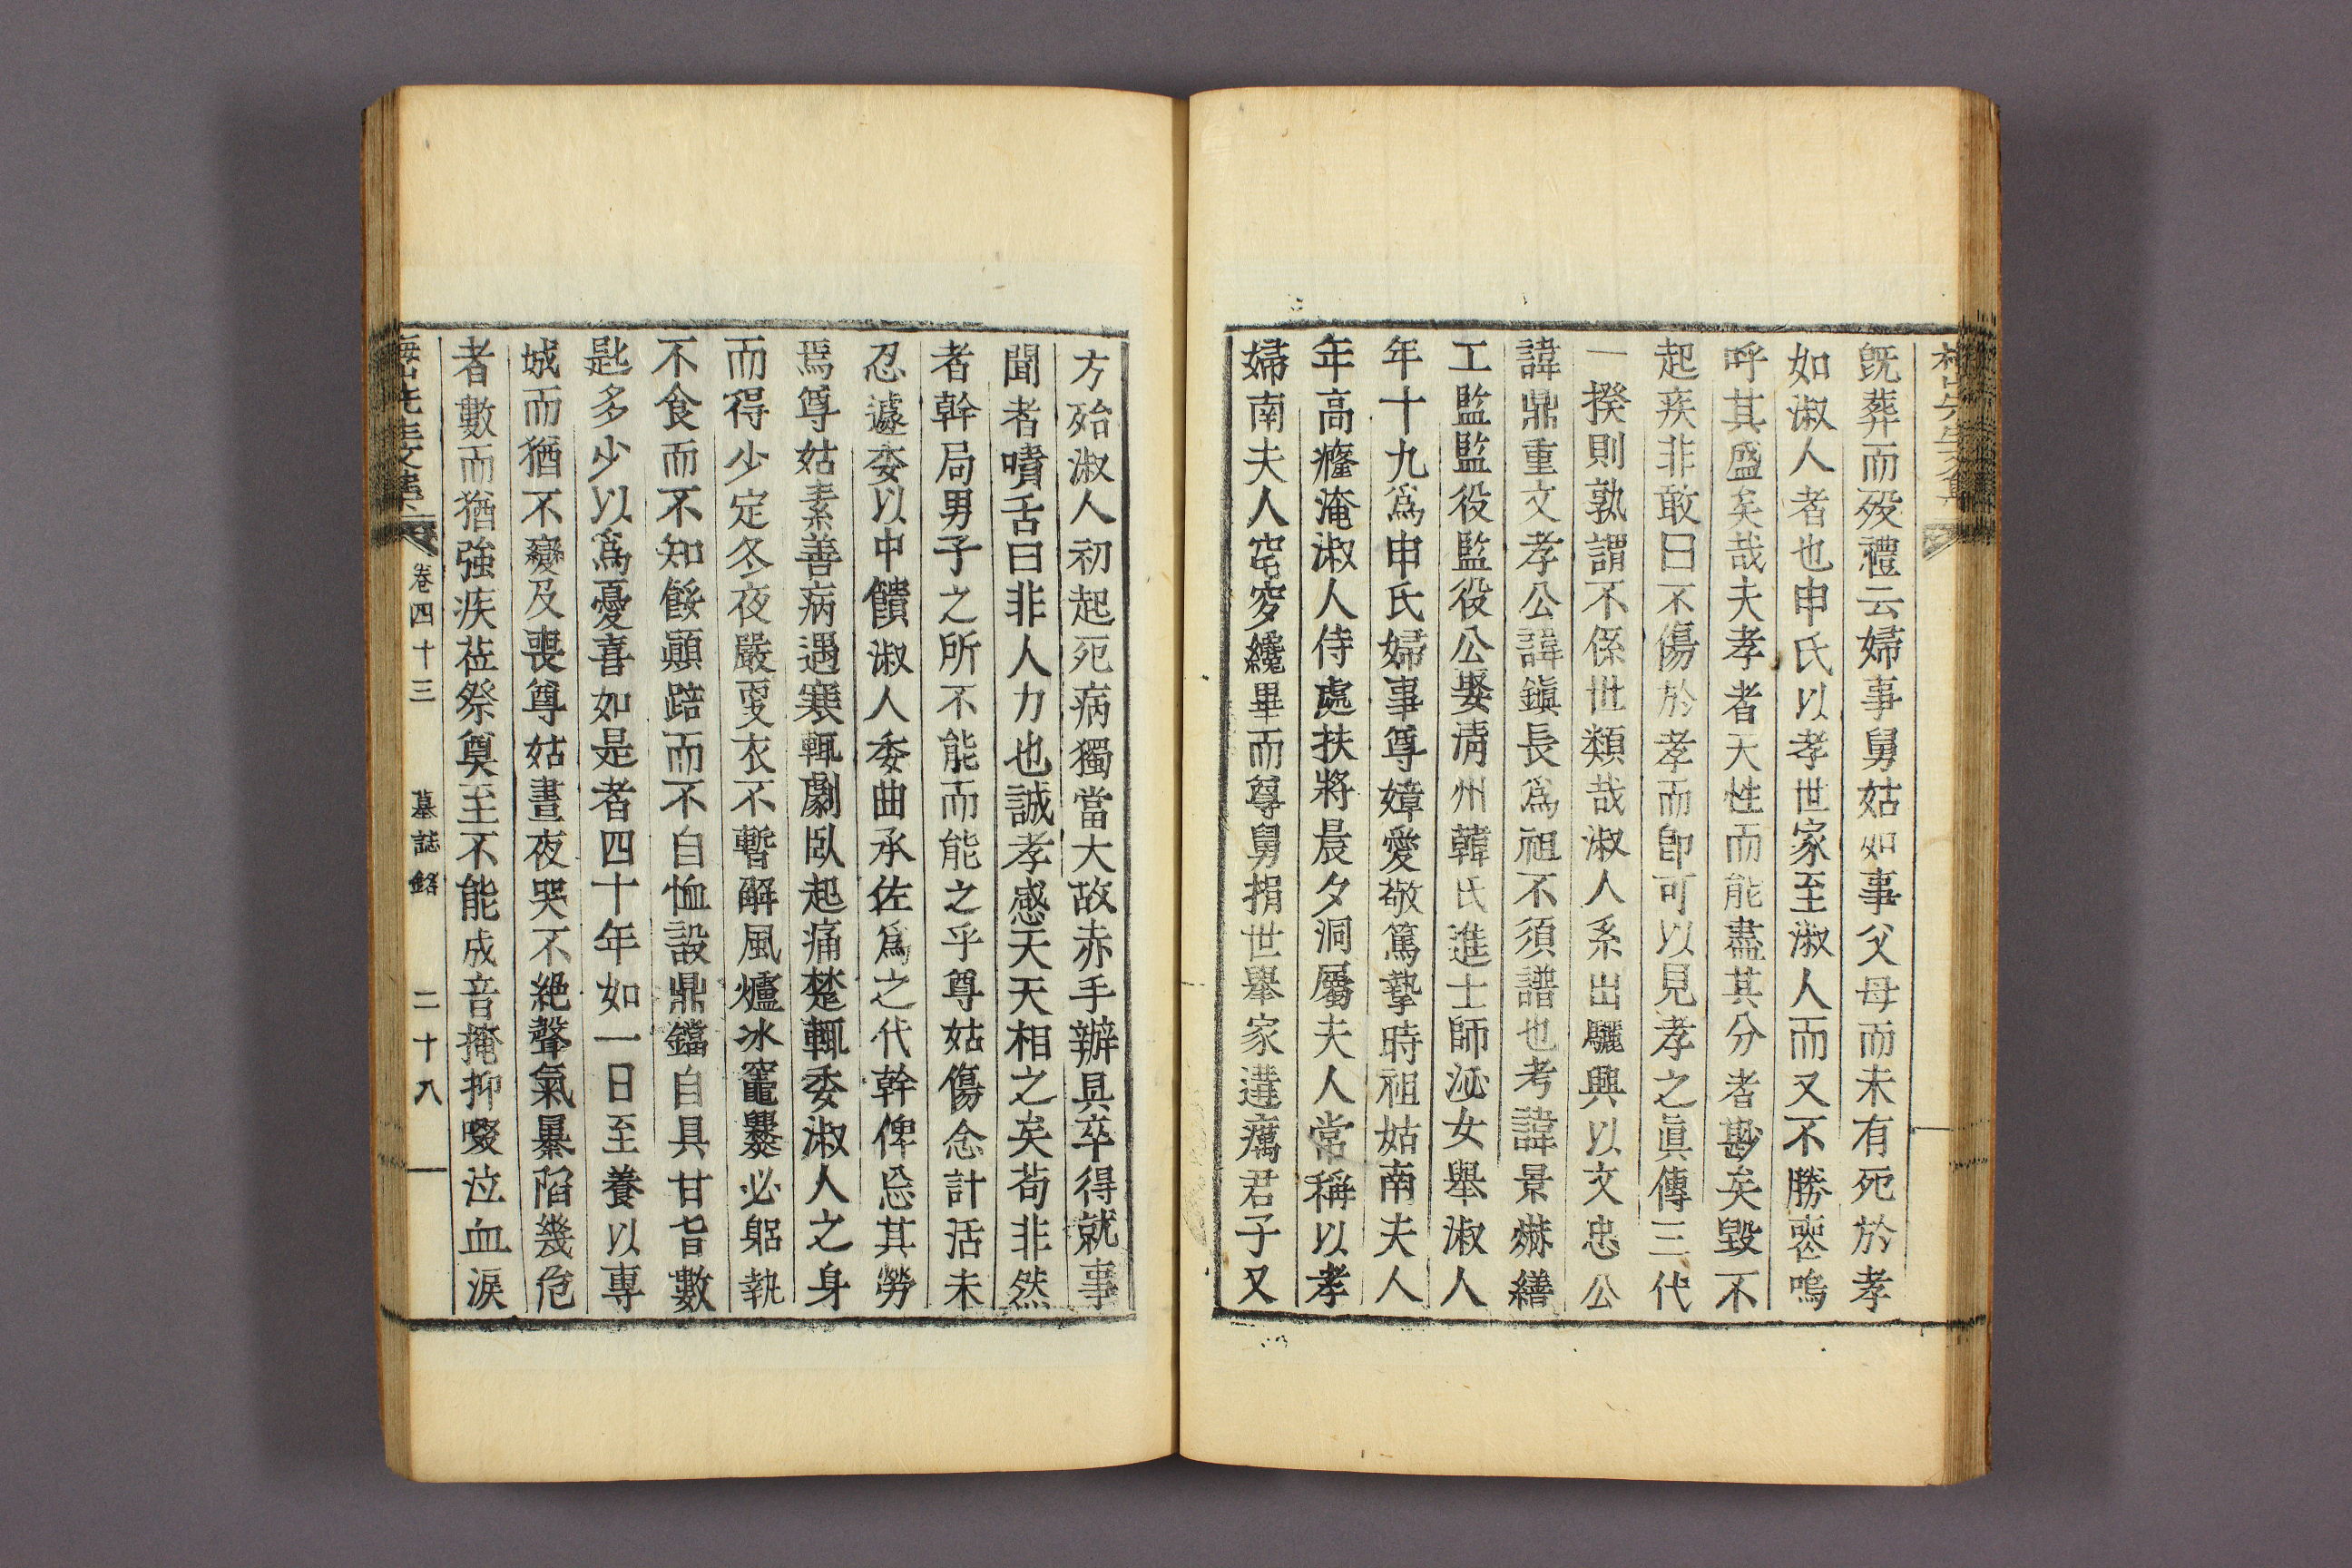 旣葬而歿禮云婦事舅姑如事父母而未有死於孝
如淑人者也申氏以孝世家至淑人而又不勝喪嗚
呼其盛矣哉夫孝者天性而能盡其分者尠矣毁不
起疾非敢曰不傷於孝而卽可以見孝之眞傳三代
一揆則孰謂不係世類哉淑人系出驪興以文忠公
諱鼎重文孝公諱鎭長爲祖不須譜也考諱景爀繕
工監監役監役公娶淸州韓氏進士師泌女舉淑人
年十九爲申氏婦事尊嫜愛敬篤摯時祖姑南夫人
年高癃淹淑人侍處扶將晨夕洞屬夫人常稱以孝
婦南夫人窀穸纔畢而尊舅捐世舉家遘癘君子又
方殆淑人初起死病獨當大故赤手辦具卒得就事
聞者嘖舌曰非人力也誠孝感天天相之矣苟非然
者幹局男子之所不能而能之乎尊姑傷念計活未
忍遽委以中饋淑人委曲承佐爲之代幹俾忘其勞
焉尊姑素善病遇寒輒劇臥起痛楚輒委淑人之身
而得少定冬夜嚴沍衣不暫解風爐冰竈爨必躬執
不食而不知餒顚踣而不自恤設鼎鐺自具甘旨數
匙多少以爲憂喜如是者四十年如一日至養以專
城而猶不變及喪尊姑晝夜哭不絶聲氣暴陷幾危
者數而猶強疾莅祭奠至不能成音掩抑啜泣血淚
卷四十三 墓誌銘 二十八